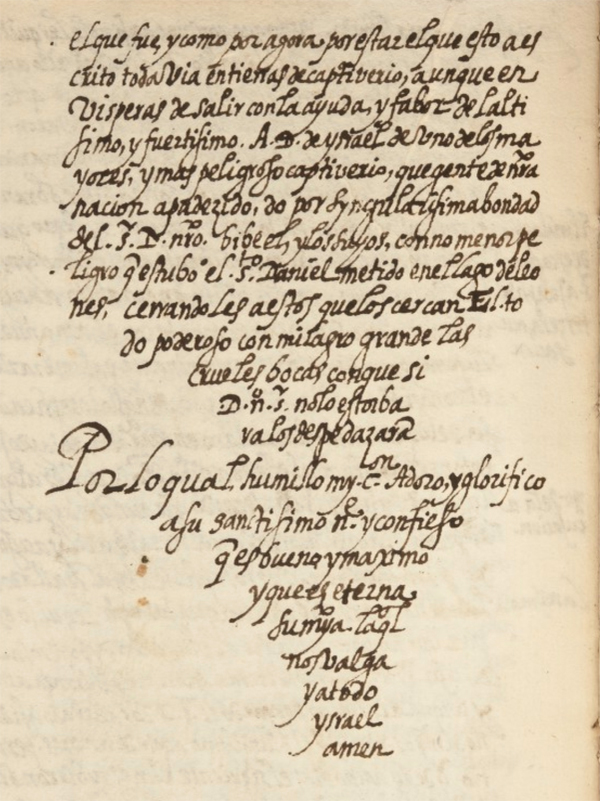 el que fue, y como por agora por estar el que esto a es
crito toda Via en tierras de captiverio, aunque en
Visperas de salir con la ayuda, y fabor de l alti
simo, y fuertisimo. A. D. de ysrael de Uno de los ma
yores, y mas peligroso captiverio, que gente de nr̃a
nacion a padezido, do por syngularisima bondad
del. S̃. D. nr̃o. bibe el, y los suyos, con no menor pe
ligro q̃ estubo el. S.to Daniel metido en el lago de leo
nes, cerrandoles a estos que los cercan El. to
do poderoso con milagro grande las
crueles bocas con que si
D. nº. S̃. no lo estorba
va los despedazarã
Por lo qual, humillo my. C.on Adoro, y glorifico
a su sanctisimo n.e y confieso
q̃ es bueno, y maximo
y que es eterna
su mỹa. la q̃l
nos valga
y a todo
ysrael
amen